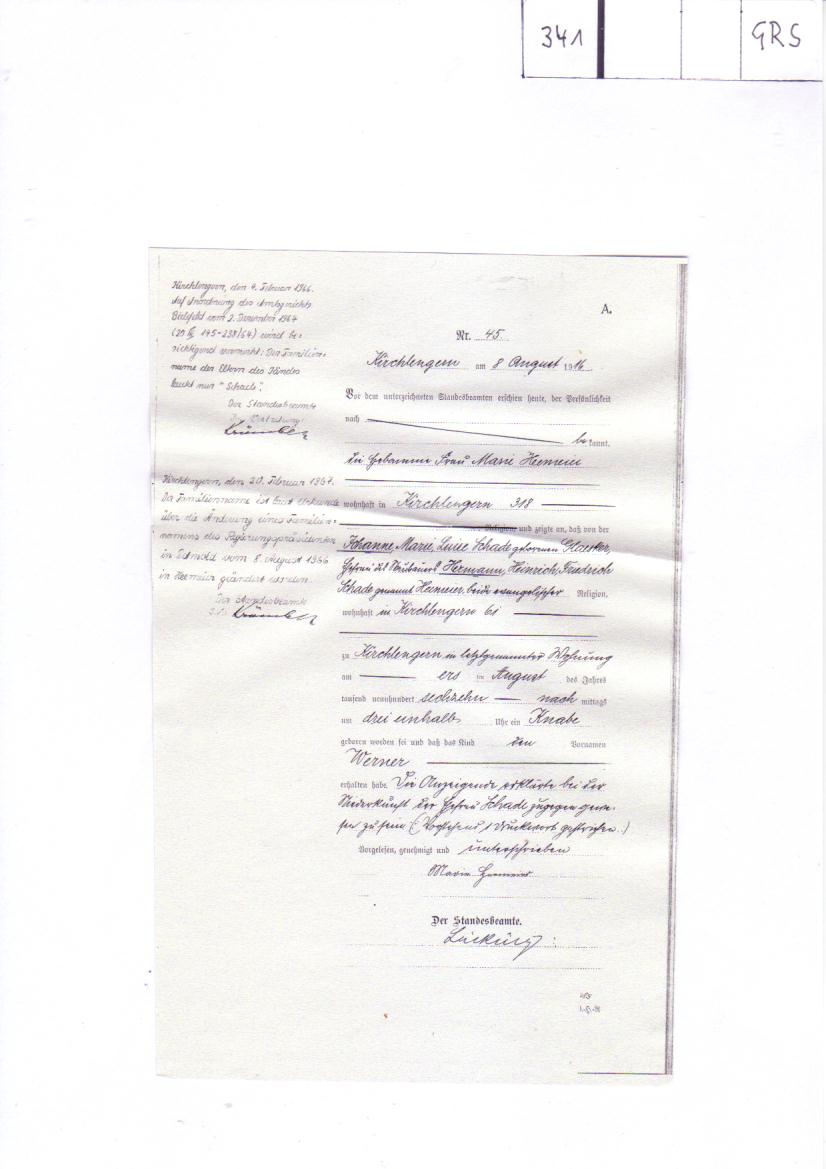 341
GRS
Kirchlengern, den 4. Februar 1966.
Auf Anordnung des Amtsgerichts
Bielefeld vom 2. Dezember 1964
wird be-
richtigend vermerkt: Der Familien-
name der Eltern des Kindes
lautet nur "Schade".
Der Standesbeamte
In Vertretung:
Kirchlengern, den 20. Februar 1967.
Der Familienname ist laut Urkunde
über die Änderung eines Familien-
namens des Regierungspräsidenten
in Detmold vom 8. August 1966
in Heemeier geändert worden.
Der Standesbeamte
A.
Nr. 45.
Kirchlengern am 8 August 1916
Vor dem unterzeichneten Standesbeamten erschien heute, der Persönlichkeit
nach
be kannt,
die Hebamme Frau Marie
wohnhaft in Kirchlengern 318
Religion, und zeigte an, daß von der
Johanne, Marie, Luise Schade geborenen
Ehefrau des Neubauers Hermann, Heinrich, Friedrich
Schade genannt Heemeier, beide evangelischer Religion,
wohnhaft in Kirchlengern 61
zu Kirchlengern in letztgenannter Wohnung
am ers ten August des Jahres
tausend neunhundert sechzehn nach mittags
um drei einhalb Uhr ein Knabe
geboren worden sei und daß das Kind den Vornamen
Werner
erhalten habe. Die Anzeigende erklärte bei der
Niederkunft der Ehefrau Schade zugegen gewe-
sen zu sein. (Vorstehend 1 Druckwort gestrichen.)
Vorgelesen, genehmigt und unterschrieben
Marie
Der Standesbeamte.